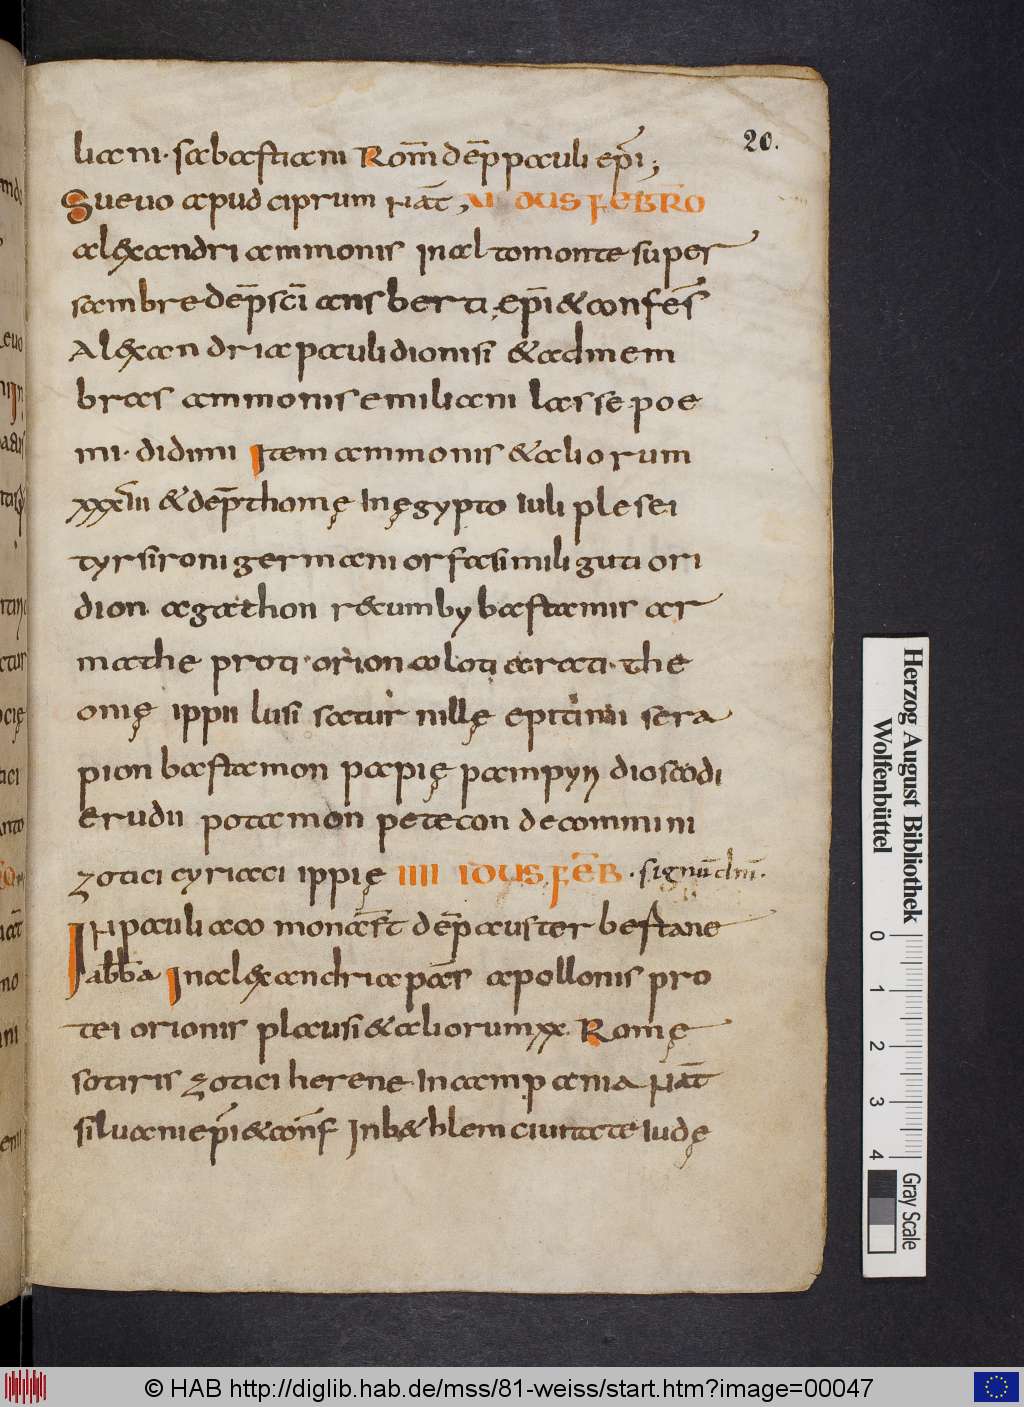 20.
liani · sabastiani Rom̄ dēp pauli ep̄i ;
Sueuo apud ciprum Nat̄ , VI IDUS FEBRO
alexandri ammonis in altomonte super
sambre dēp sc̄i ansberti . ep̄i & confes̄
Alexandria pauli dionisi & ad mem
bras ammonis emiliani lasse poe
mi · didimi Item ammonis & aliorum
xxxiiii & dēp thomę In ęgypto iuli plesei
tyrsironi germani orfasimili guti ori
dion agathon recumby bastamis ar
mathe proti · orion coloti arati · the
onię ippii lusi satur nillę eptimii sera
pion bastamon papię pampyn dioscodi
erudii potamon petecon decommini
zotici cyriaci ippię IIII IDUS . FEB̄ · signū dn̄i ·
IN pauli aco monast̄ dēp austerbestane
abb̄a In alexandria pas̄ apollonis pro
tei orionis plausi & aliorum xx . Romę
sotiris zotici herene · In campania Nat̄
siluani ep̄i & conf̄ In b&hlem ciuitate iudę
Herzog August Bibliothek
Wolfenbüttel
0 1 2 3 4
Gray Scale
© HAB http://diglib.hab.de/mss/81-weiss/start.htm?image=00047